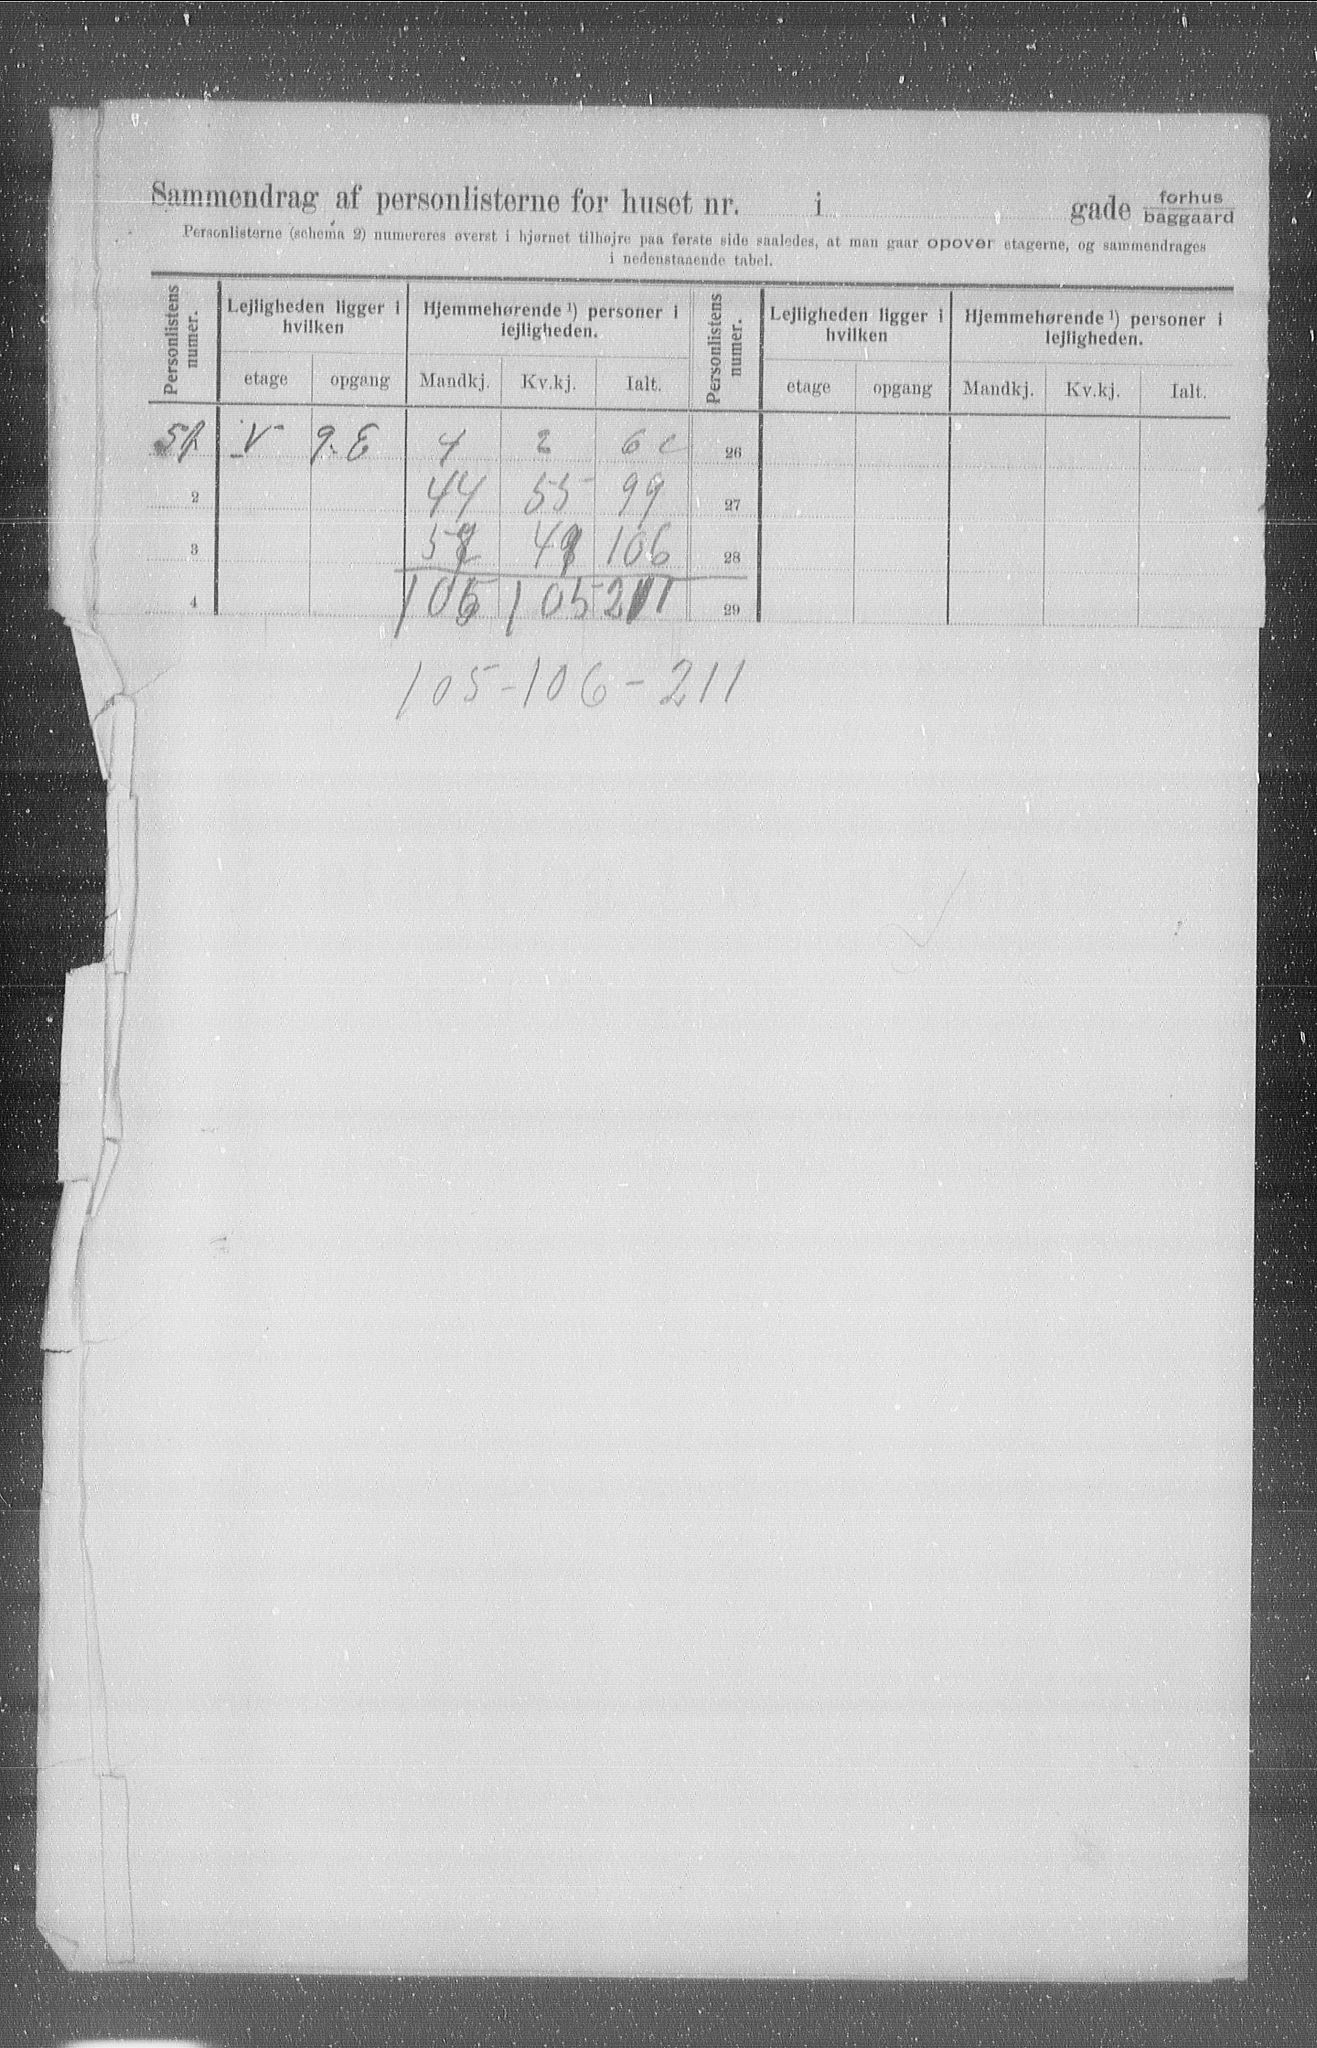 Sammendrag af personlisterne for huset nr. i gade forhus baggaard
Personlisterne (schema 2) numereres øverst i hjørnet tilhøjre paa første side saaledes, at man gaar opover etagerne, og sammendrages
i nedenstaaende tabel.
Personlistens numer. Lejligheden ligger i hvilken Hjemmehørende ¹) personer i lejligheden. Personlistens numer. Lejligheden ligger i hvilken Hjemmehørende ¹) personer i lejligheden.
etage opgang Mandkj. Kv.kj. Ialt. etage opgang Mandkj. Kv.kj. Ialt.
51 V 9. E 4 2 6 c 26
2 44 55 99 27
3 106 28
4 105 211 29
105-106-211